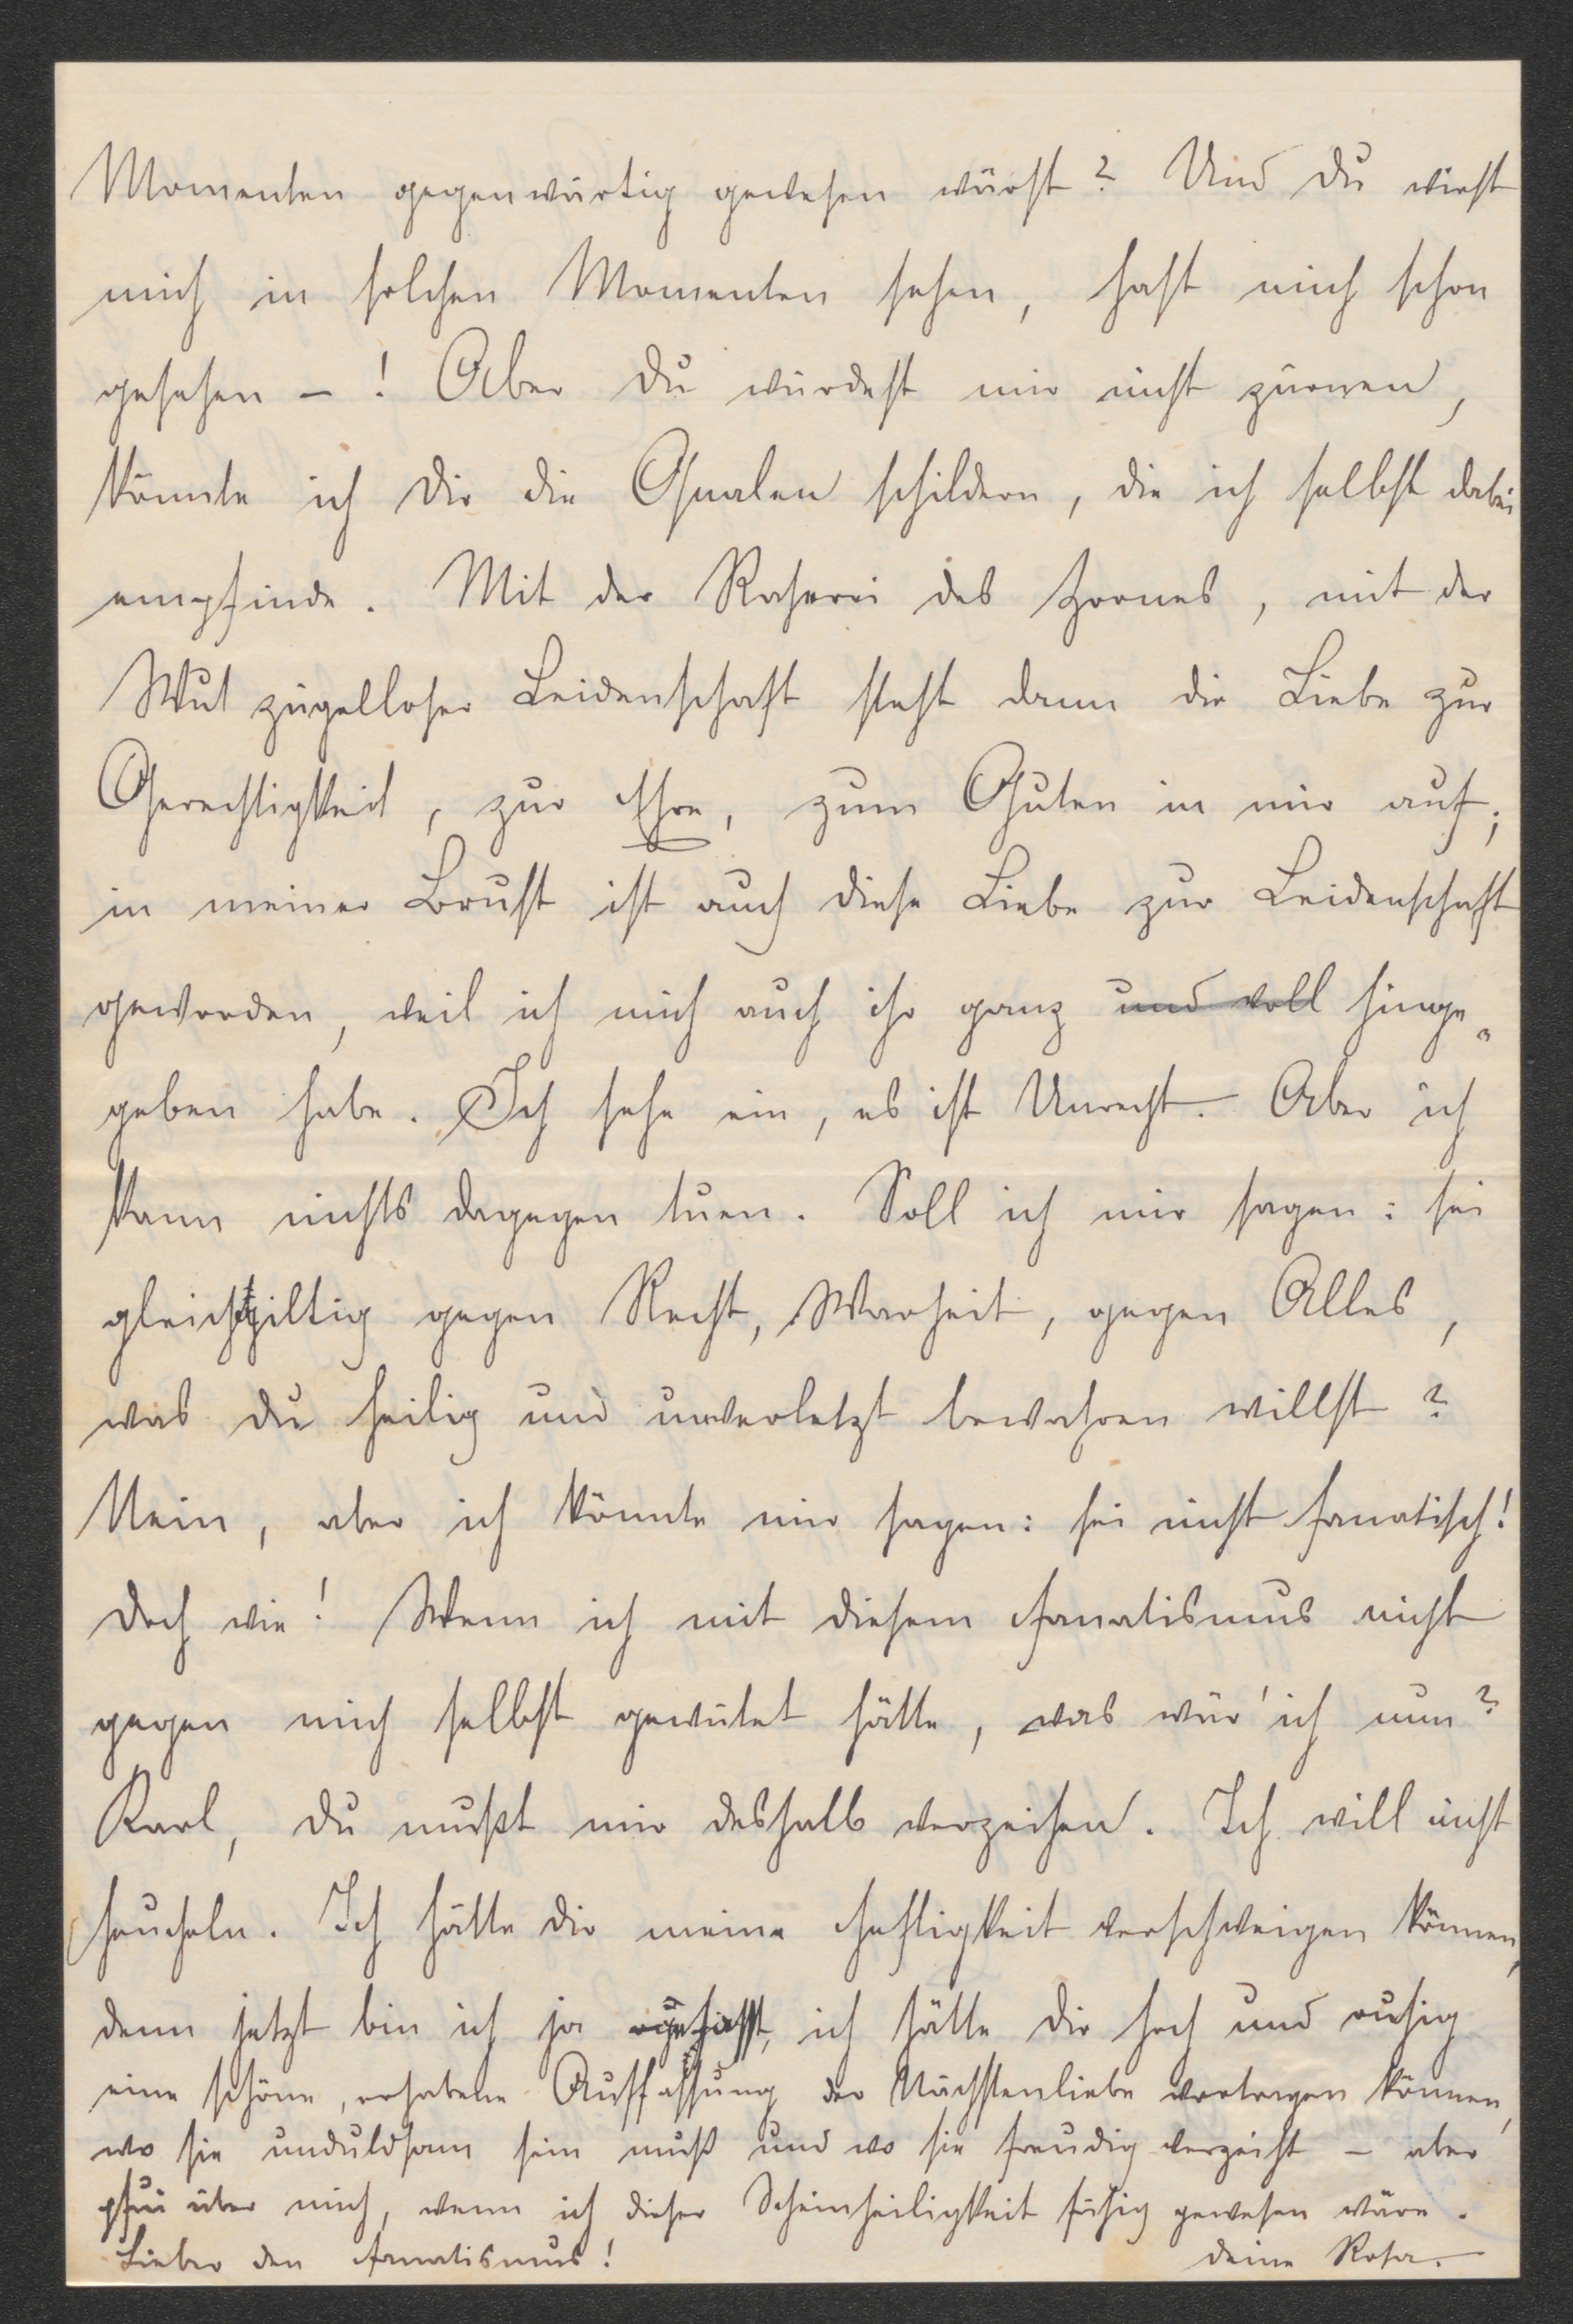 Momenten gegenwärtig gewesen wärst? Und du wirst
mich in solchen Momenten sehen, hast mich schon
gesehen – ! Aber du würdest mir nicht zürnen,
könnte ich dir die Qualen schildern, die ich selbst dabei
empfinde. Mit der Raserei des Zornes, mit der
Wut zügelloser Leidenschaft steht dann die Liebe zur
Gerechtigkeit, zur Ehre, zum Guten in mir auf;
in meiner Brust ist auch diese Liebe zur Leidenschaft
geworden, weil ich mich auch ihr ganz und voll hinge„
geben habe. Ich sehe ein, es ist Unrecht. Aber ich
kann nichts dagegen tuen. Soll ich mir sagen: sei
gleichgiltig gegen Recht, Warheit, gegen Alles,
was du heilig und unverletzt bewahren willst?
Nein, aber ich könnte mir sagen: sei nicht fanatisch!
Doch wie! Wenn ich mit diesem Fanatismus nicht
gegen mich selbst gewütet hätte, was wär' ich nun?
Karl, du mußt mir deshalb verzeihen. Ich will nicht
heucheln. Ich hätte dir meine Heftigkeit verschweigen können,
denn jetzt bin ich ja gefasst, ich hätte dir hoch und ruhig
eine schöne, erhabene Auffassung der Nächstenliebe vortragen können,
wo sie unduldsam sein muß und wo sie freudig verzeiht – aber
pfui über mich, wenn ich dieser Scheinheiligkeit fähig gewesen wäre.
Lieber den Fanatismus! Deine Rosa.